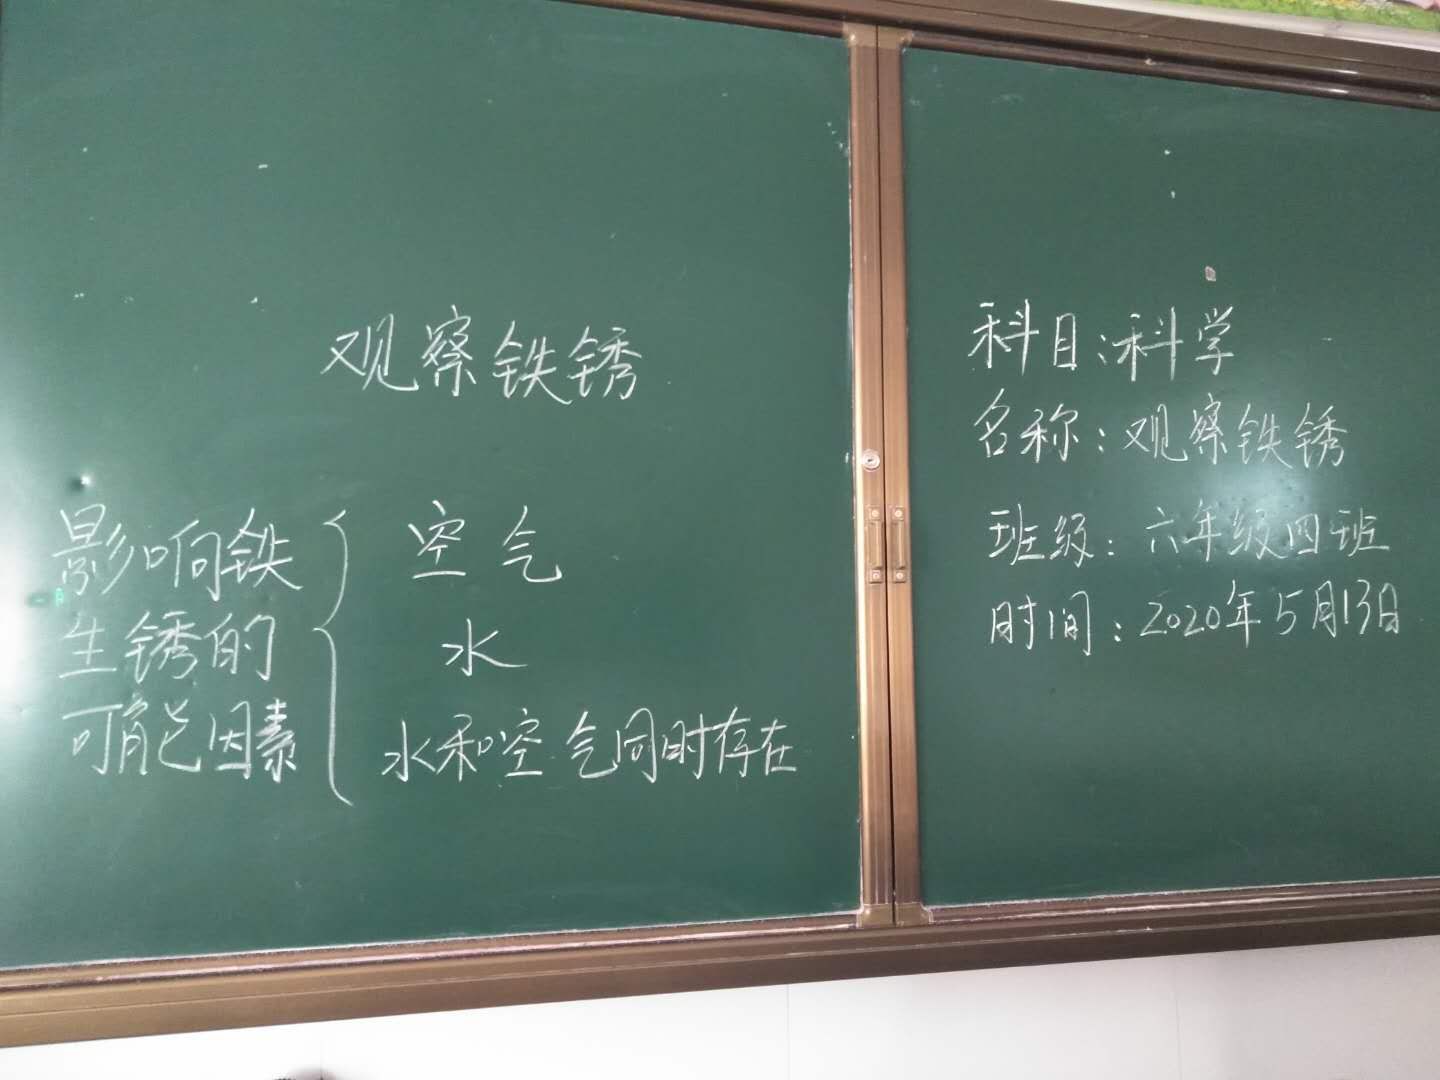 观察铁锈
影响铁
生锈的
可能因素
空气
水
水和空气同时存在
科目:科学
名称:观察铁锈
班级:六年级四班
时间:2020年5月13日